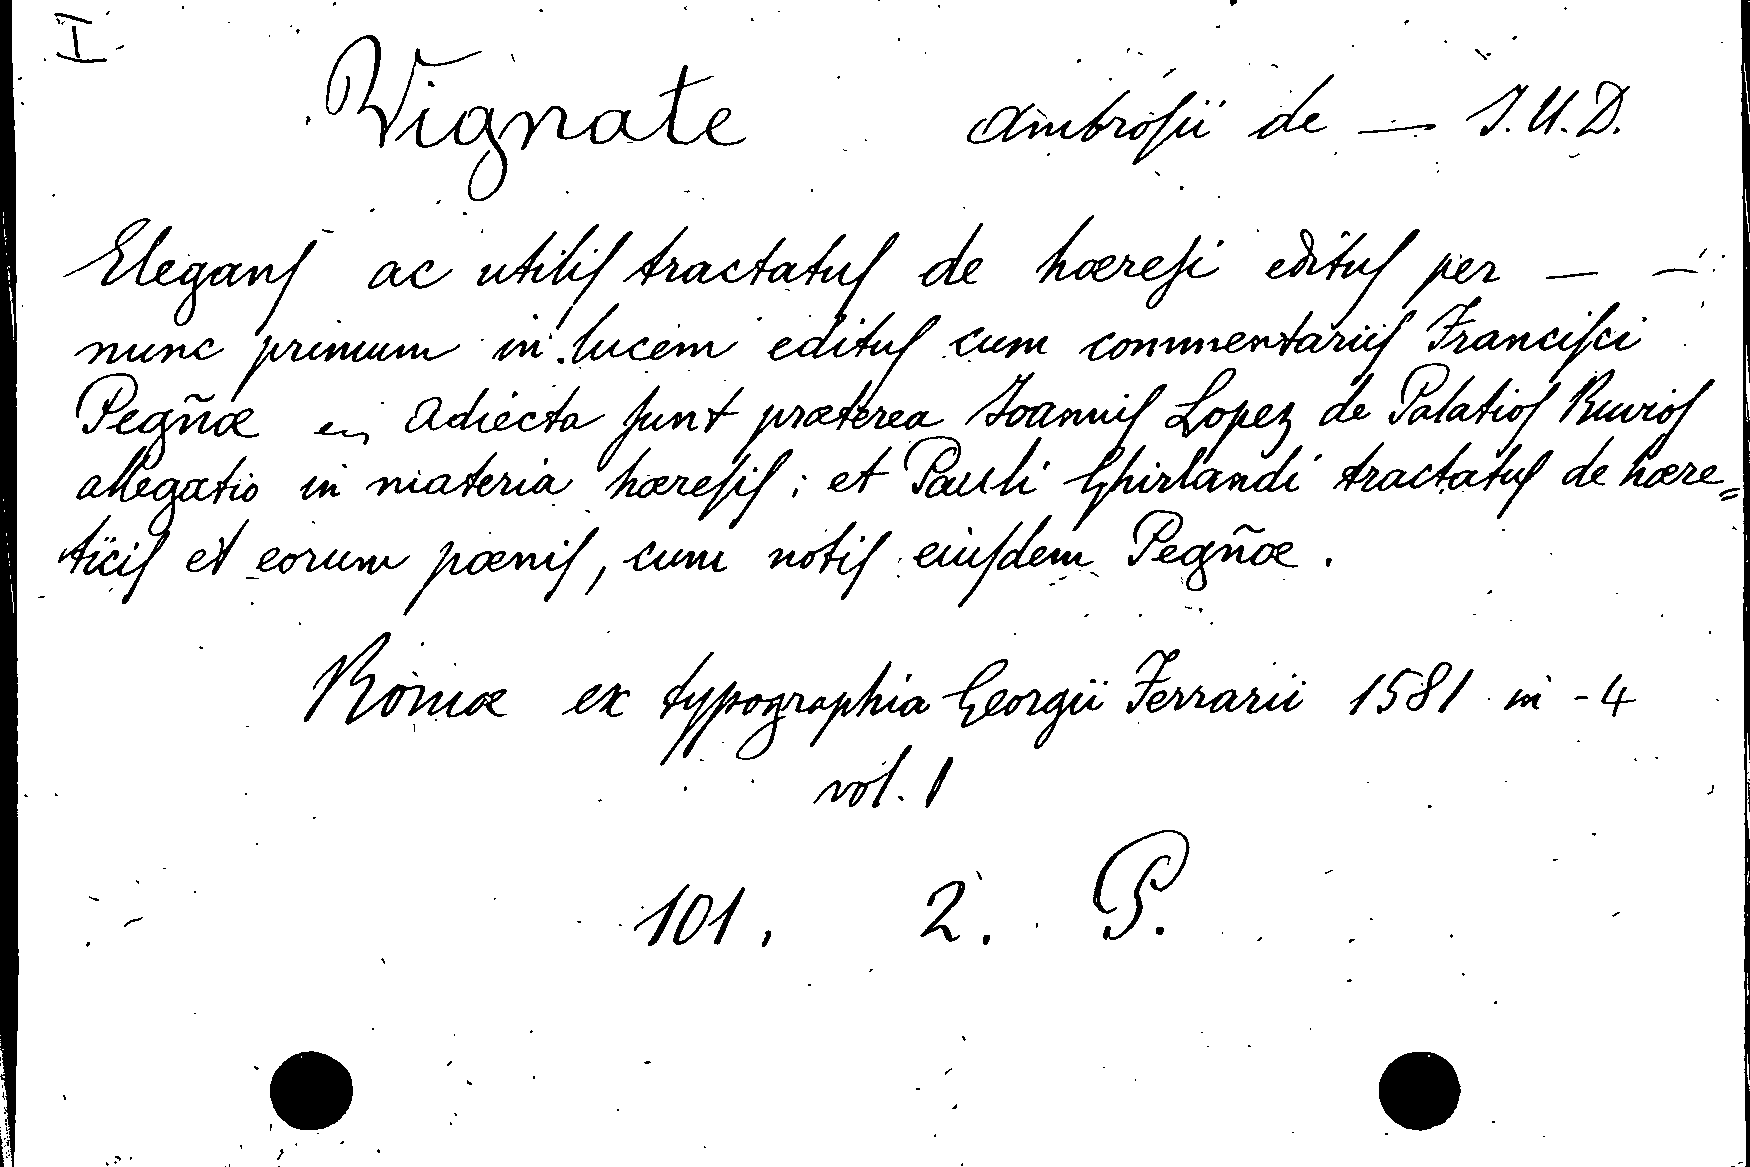 I
Vignate Ambrosii de — I.U.D.
Elegans ac utilis tractatus de hæresi editus per — —
nunc primum in lucem editus cum commentariis Francisci
Pegñæ en Adiecta sunt præterea Ioannis Lopez de Palatios Ruvios
allegatio in materia hæresis; et Pauli Ghirlandi tractatus de hære=
ticis et eorum pœnis, cum notis eiusdem Pegñæ.
Romæ ex typographia Georgii Ferrarii 1581 in -4
vol. 1
101. 2. P.